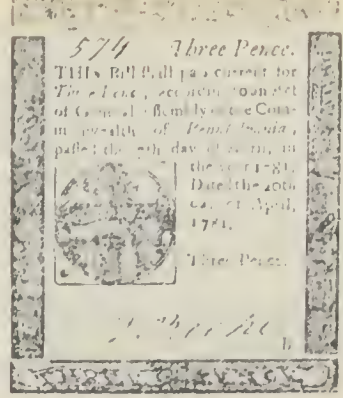 574 Three Pence.
THIS Bill shall pass current for
Three Pence, according to an Act
of General Assembly of the Com-
monwealth of Pennsylvania,
passed the day of in
the year 1781.
Dated the 20th
day of April,
1781.
Three Pence.